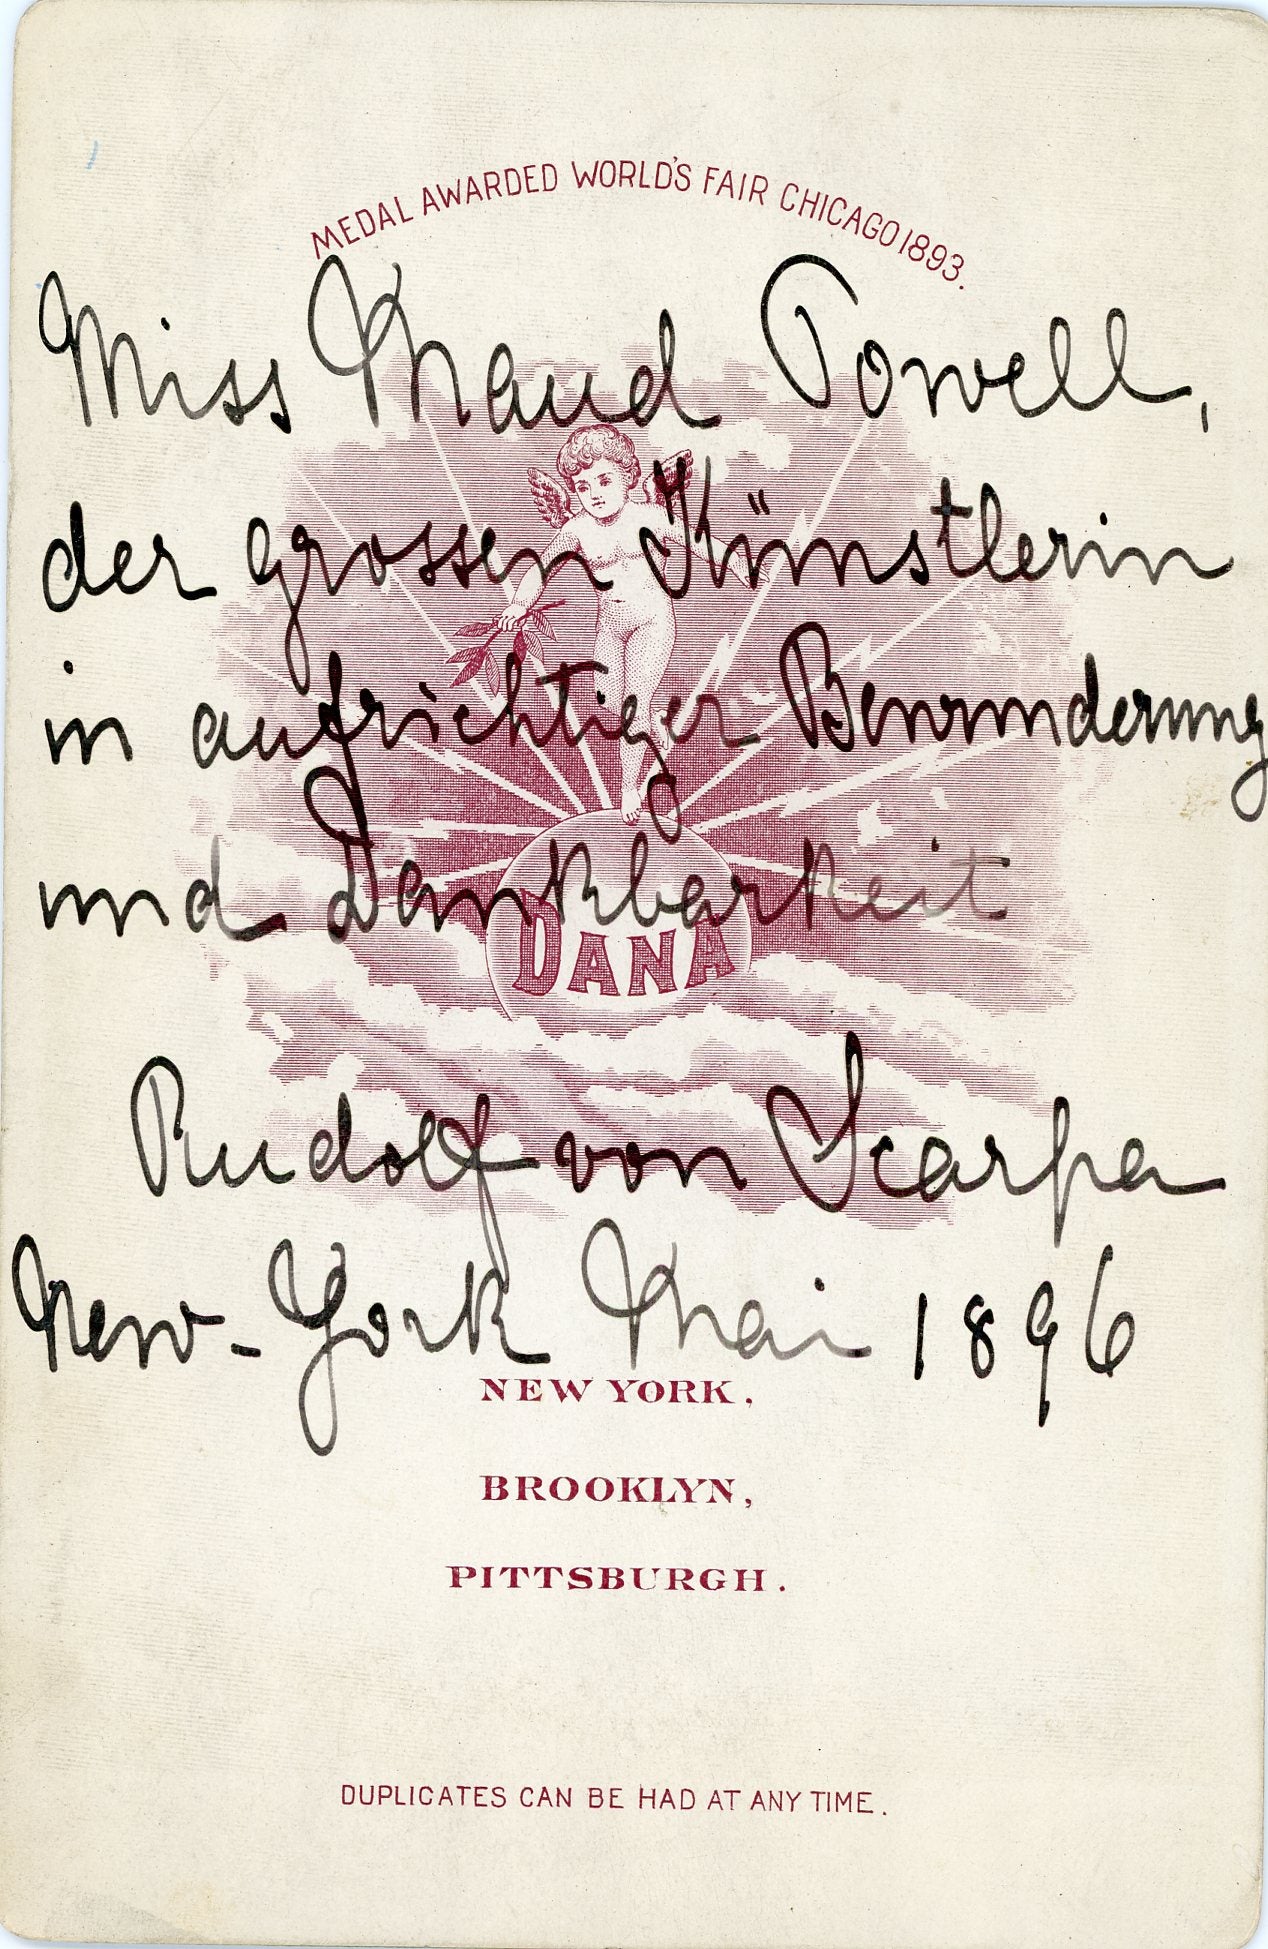 MEDAL AWARDED WORLD'S FAIR CHICAGO 1893.
Miss Maud Powell,
der grossen Künstlerin
in aufrichtiger Bewunderung
und Dankbarkeit
DANA
Rudolf von Scarpa
New-York Mai 1896
NEW YORK,
BROOKLYN,
PITTSBURGH.
DUPLICATES CAN BE HAD AT ANY TIME.